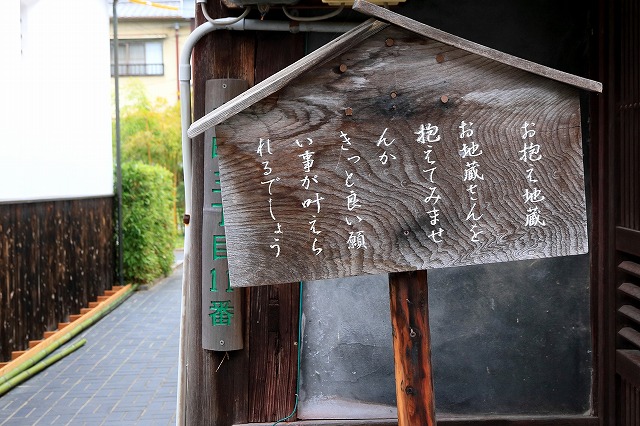 お抱え地蔵
お地蔵さんを
抱えてみませ
んか
きっと良い願
い事が叶えら
れるでしょう
三丁目11番